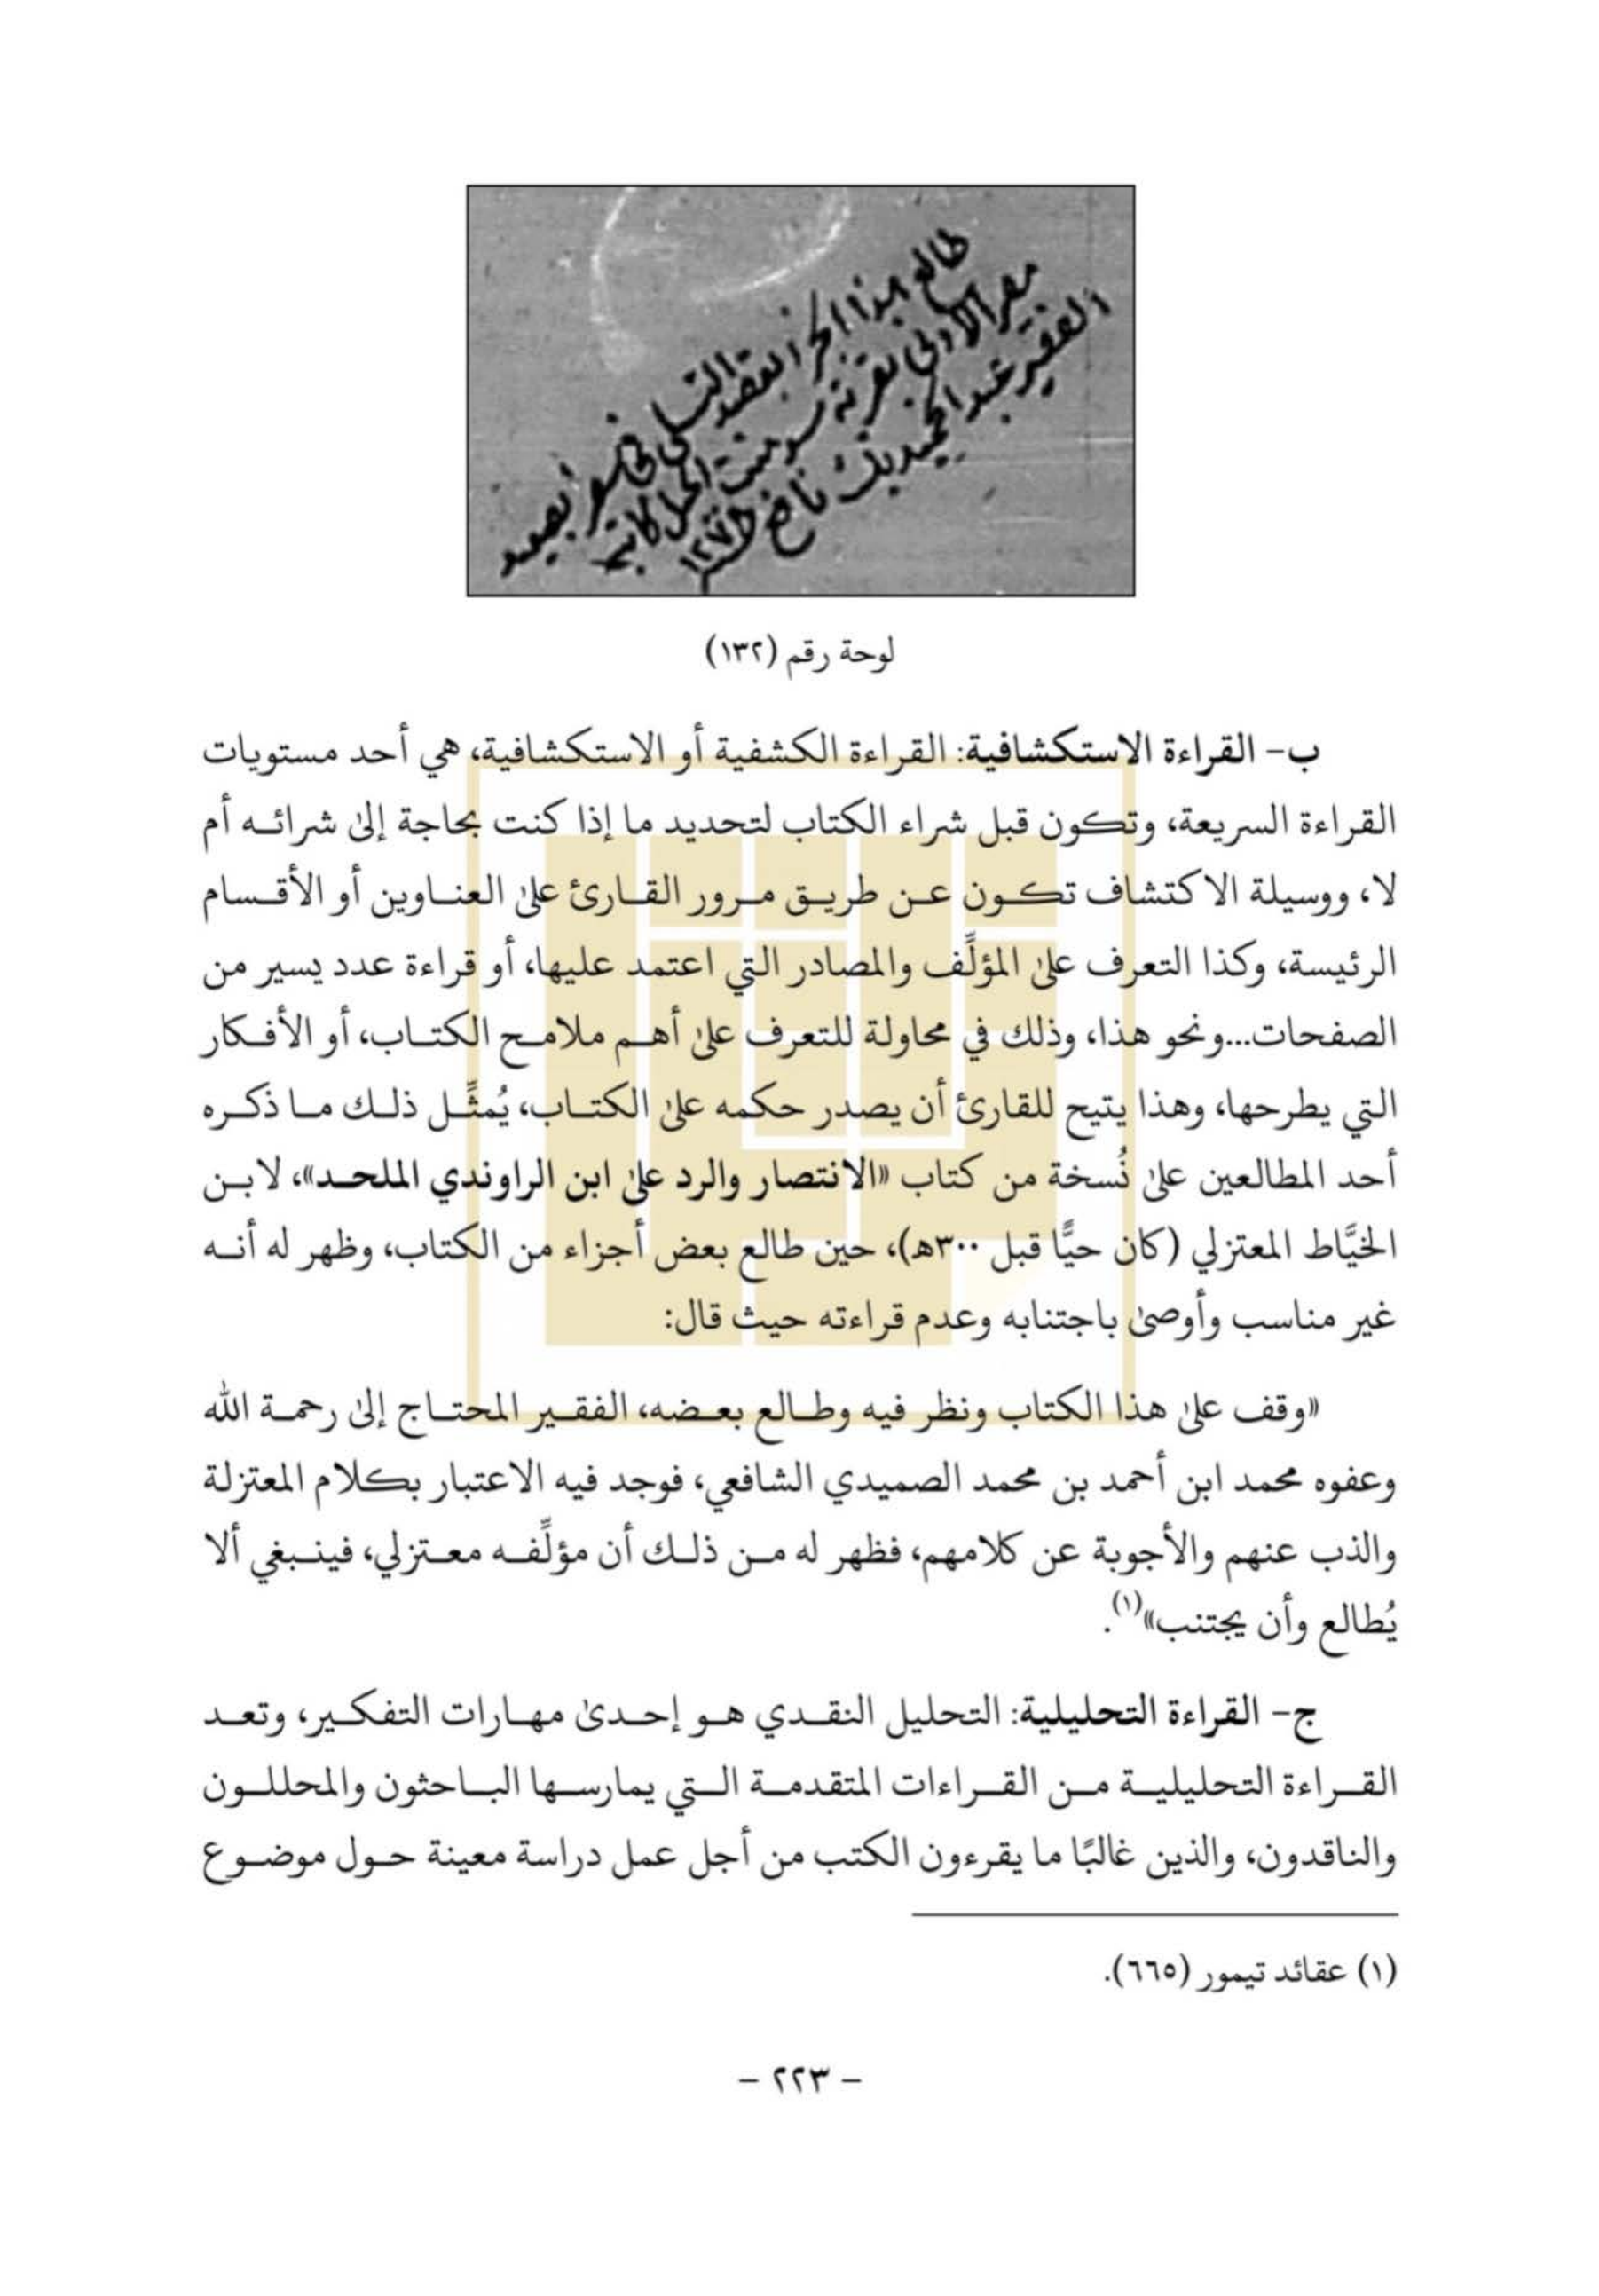 طالع هذا الجزء
الفقير عبد الحميد بك نافع
١٢٧٦
لوحة رقم (١٣٢)
ب- القراءة الاستكشافية: القراءة الكشفية أو الاستكشافية، هي أحد مستويات
القراءة السريعة، وتكون قبل شراء الكتاب لتحديد ما إذا كنت بحاجة إلى شرائه أم
لا، ووسيلة الاكتشاف تكون عن طريق مرور القارئ على العناوين أو الأقسام
الرئيسة، وكذا التعرف على المؤلِّف والمصادر التي اعتمد عليها، أو قراءة عدد يسير من
الصفحات...ونحو هذا، وذلك في محاولة للتعرف على أهم ملامح الكتاب، أو الأفكار
التي يطرحها، وهذا يتيح للقارئ أن يصدر حكمه على الكتاب، يُمثِّل ذلك ما ذكره
أحد المطالعين على نُسخة من كتاب «الانتصار والرد على ابن الراوندي الملحد»، لابن
الخيَّاط المعتزلي (كان حيًّا قبل ٣٠٠هـ)، حين طالع بعض أجزاء من الكتاب، وظهر له أنه
غير مناسب وأوصى باجتنابه وعدم قراءته حيث قال:
«وقف على هذا الكتاب ونظر فيه وطالع بعضه، الفقير المحتاج إلى رحمة الله
وعفوه محمد ابن أحمد بن محمد الصميدي الشافعي، فوجد فيه الاعتبار بكلام المعتزلة
والذب عنهم والأجوبة عن كلامهم، فظهر له من ذلك أن مؤلِّفه معتزلي، فينبغي ألا
يُطالع وأن يجتنب»(١).
ج- القراءة التحليلية: التحليل النقدي هو إحدى مهارات التفكير، وتعد
القراءة التحليلية من القراءات المتقدمة التي يمارسها الباحثون والمحللون
والناقدون، والذين غالبًا ما يقرءون الكتب من أجل عمل دراسة معينة حول موضوع
(١) عقائد تيمور (٦٦٥).
- ٢٢٣ -